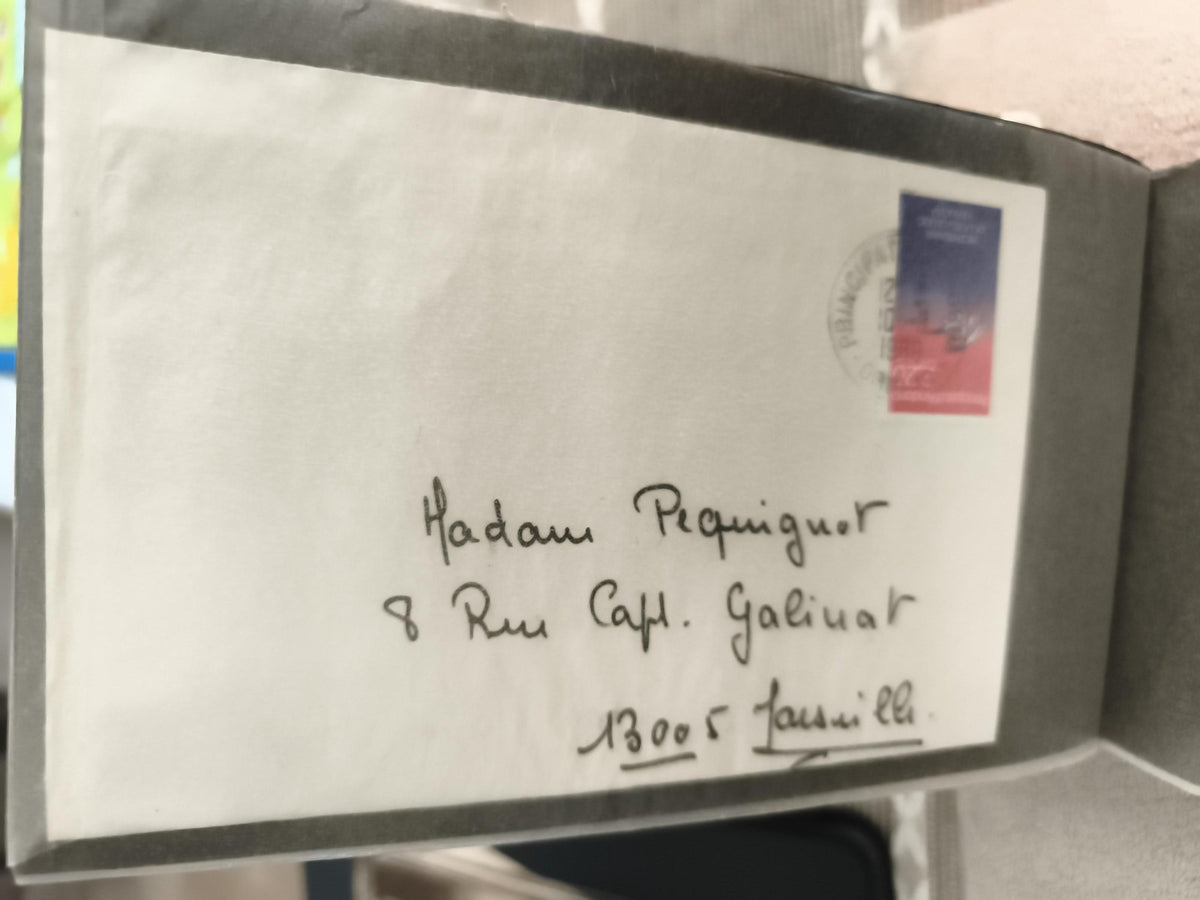 PRINCIPAT
Madame Pequignot
8 Rue Capt. Galinat
13005 Marseille.